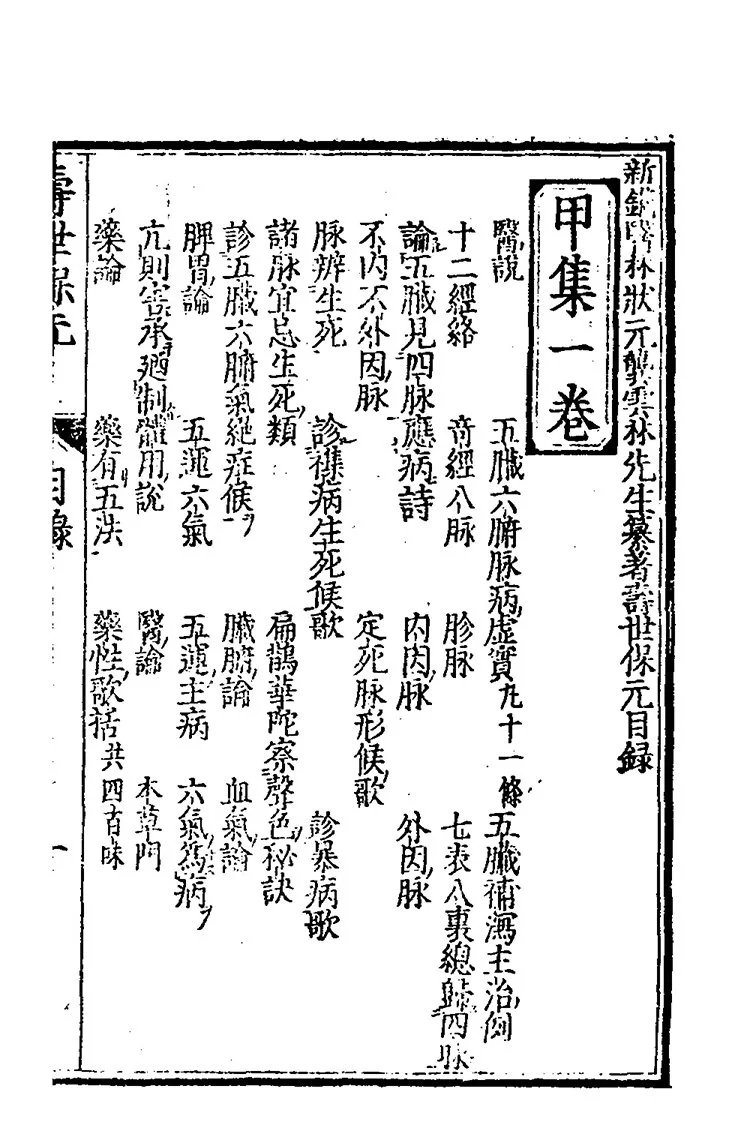 新鋟醫林狀元龔雲林先生纂著壽世保元目錄
甲集一卷
醫說 五臟六腑脉病虛實九十一條 五臟補瀉主治例
十二經絡 奇經八脉 胗脉 七表八裏總歸四脉
論五臟見四脉應病詩 内因脉 外因脉
不内不外因脉 定死脉形候歌
脉辨生死 診襍病生死候歌 診暴病歌
諸脉宜忌生死類 扁鵲華陀察聲色秘訣
診五臟六腑氣絕症候 臟腑論 血氣論
脾胃論 五運六氣 五運主病 六氣為病
亢則害承廼制體用說 醫論 本草門
藥論 藥有五法 藥性歌括共四百味
壽世保元 目錄 一